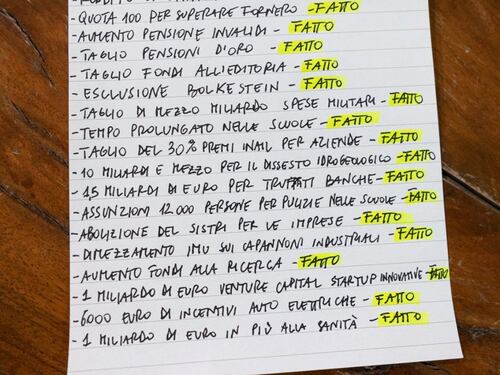 - QUOTA 100 PER SUPERARE FORNERO - FATTO
- AUMENTO PENSIONE INVALIDI - FATTO
- TAGLIO PENSIONI D'ORO - FATTO
- TAGLIO FONDI ALL'EDITORIA - FATTO
- ESCLUSIONE BOLKESTEIN - FATTO
- TAGLIO DI MEZZO MILIARDO SPESE MILITARI - FATTO
- TEMPO PROLUNGATO NELLE SCUOLE - FATTO
- TAGLIO DEL 30% PREMI INAIL PER AZIENDE - FATTO
- 10 MILIARDI E MEZZO PER IL DISSESTO IDROGEOLOGICO - FATTO
- 1,5 MILIARDI DI EURO PER TRUFFATI BANCHE - FATTO
- ASSUNZIONI 12000 PERSONE PER PULIZIE NELLE SCUOLE - FATTO
- ABOLIZIONE DEL SISTRI PER LE IMPRESE - FATTO
- DIMEZZAMENTO IMU SUI CAPANNONI INDUSTRIALI - FATTO
- AUMENTO FONDI ALLA RICERCA - FATTO
- 1 MILIARDO DI EURO VENTURE CAPITAL STARTUP INNOVATIVE - FATTO
- 6000 EURO DI INCENTIVI AUTO ELETTRICHE - FATTO
- 1 MILIARDO DI EURO IN PIÙ ALLA SANITÀ - FATTO